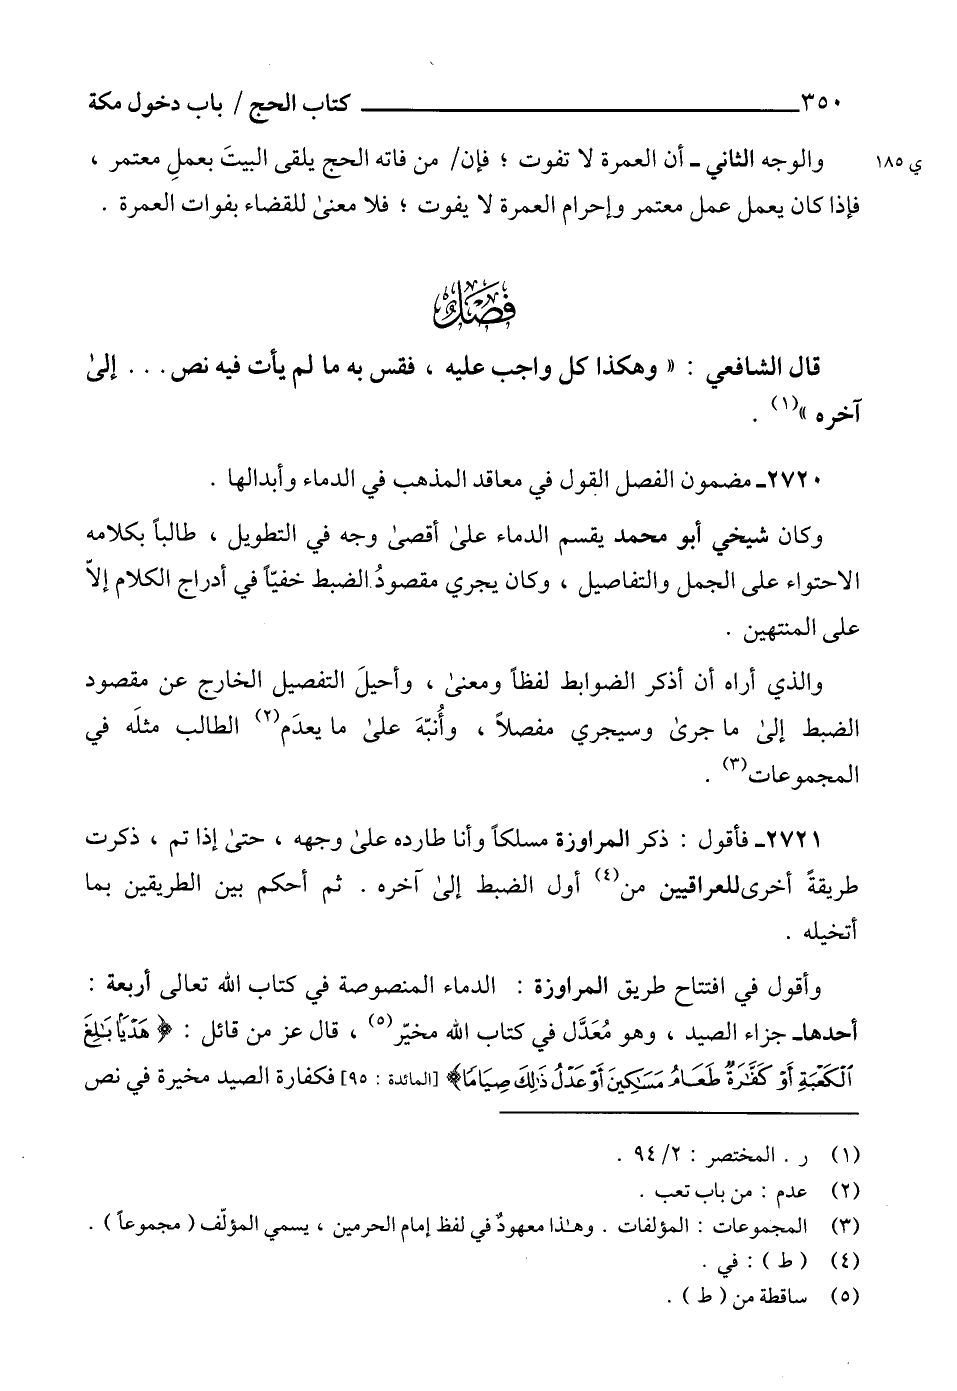 ٣٥٠ ــــــــــــــــــــــــــــــــــــــــــــــ كتاب الحج / باب دخول مكة
والوجه الثاني ـ أن العمرة لا تفوت ؛ فإن/ من فاته الحج يلقى البيتَ بعملِ معتمر ، ي ١٨٥
فإذا كان يعمل عمل معتمر وإحرام العمرة لا يفوت ؛ فلا معنىٰ للقضاء بفوات العمرة .
فصل
قال الشافعي : « وهكذا كل واجب عليه ، فقس به ما لم يأت فيه نص . . . إلىٰ
آخره »(١) .
٢٧٢٠ـ مضمون الفصل القول في معاقد المذهب في الدماء وأبدالها .
وكان شيخي أبو محمد يقسم الدماء علىٰ أقصىٰ وجه في التطويل ، طالباً بكلامه
الاحتواء على الجمل والتفاصيل ، وكان يجري مقصودُ الضبط خفيّاً في أدراج الكلام إلاّ
على المنتهين .
والذي أراه أن أذكر الضوابط لفظاً ومعنىٰ ، وأحيلَ التفصيل الخارج عن مقصود
الضبط إلىٰ ما جرىٰ وسيجري مفصلاً ، وأُنبّهَ علىٰ ما يعدَم(٢) الطالب مثلَه في
المجموعات(٣) .
٢٧٢١ـ فأقول : ذكر المراوزة مسلكاً وأنا طارده علىٰ وجهه ، حتىٰ إذا تم ، ذكرت
طريقةً أخرى للعراقيين من(٤) أول الضبط إلىٰ آخره . ثم أحكم بين الطريقين بما
أتخيله .
وأقول في افتتاح طريق المراوزة : الدماء المنصوصة في كتاب الله تعالى أربعة :
أحدها ـ جزاء الصيد ، وهو مُعَدَّل في كتاب الله مخيّر(٥) ، قال عز من قائل : ﴿ هَدْيًا بَٰلِغَ
ٱلْكَعْبَةِ أَوْ كَفَّٰرَةٌ طَعَامُ مَسَٰكِينَ أَوْ عَدْلُ ذَٰلِكَ صِيَامًا﴾ [المائدة : ٩٥] فكفارة الصيد مخيرة في نص
(١) ر . المختصر : ٢/ ٩٤ .
(٢) عدم : من باب تعب .
(٣) المجموعات : المؤلفات . وهـٰذا معهودٌ في لفظ إمام الحرمين ، يسمي المؤلّف ( مجموعاً ) .
(٤) ( ط ) : في .
(٥) ساقطة من ( ط ) .